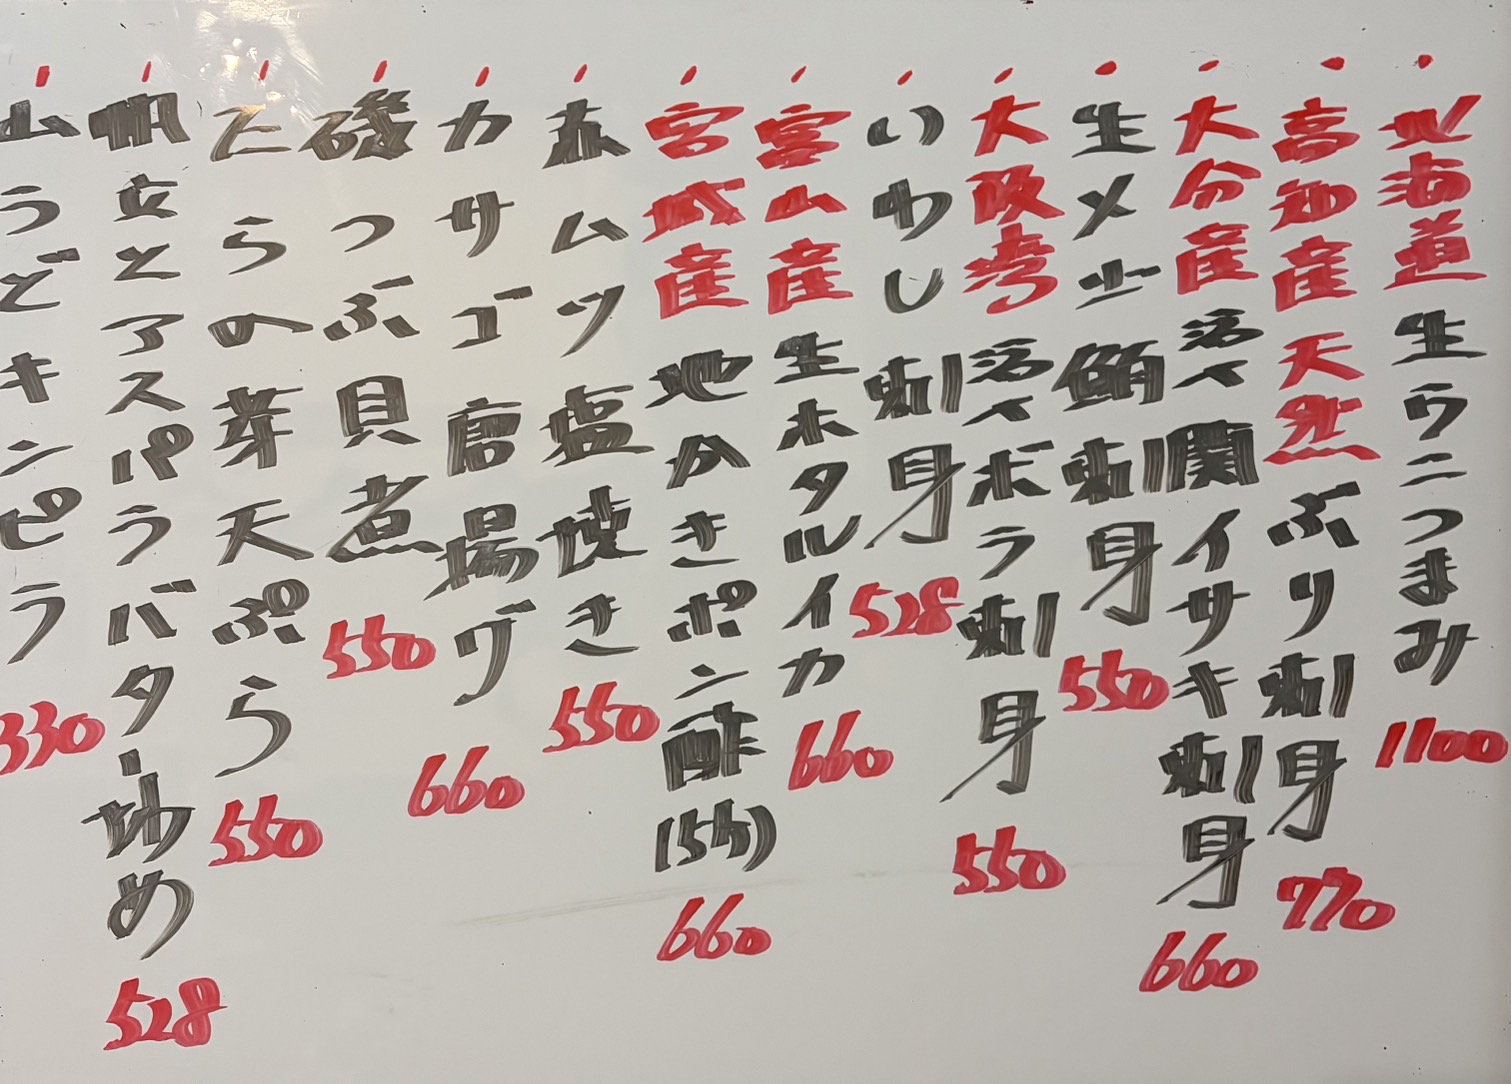 ・北海道 生ウニつまみ 1100
・高知産 天然 ぶり刺身 770
・大分産 活〆関イサキ刺身 660
・生メジ鮪刺身 550
・大阪湾 活〆ボラ刺身 550
・いわし刺身 528
・富山産 生ホタルイカ 660
・宮城産 地かきポン酢(5ヶ) 660
・赤ムツ塩焼き 550
・カサゴ唐揚げ 660
・磯つぶ貝煮 550
・たらの芽天ぷら 550
・帆立とアスパラバター炒め 528
・山うどキンピラ 330